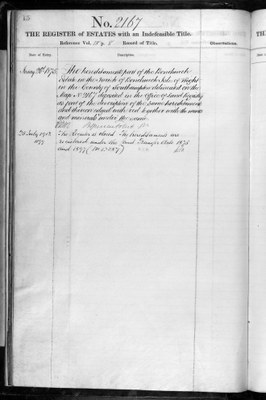 15
No. 2167
THE REGISTER of ESTATES with an Indefeasible Title.
Reference Vol. Record of Title.
Date of Entry.
Description.
Observations.
1875. The hereditament part of the Bonchurch
Estate in the Parish of Bonchurch Isle of Wight
in the County of Southampton delineated on the
Map No 2167 deposited in the Office of Land Registry
as part of the description of the said hereditament
and thereon edged with red together with the mines
and minerals under the same
20 July 1903 The Register is closed. The hereditaments are
registered under the Land Transfer Acts 1875
and 1897